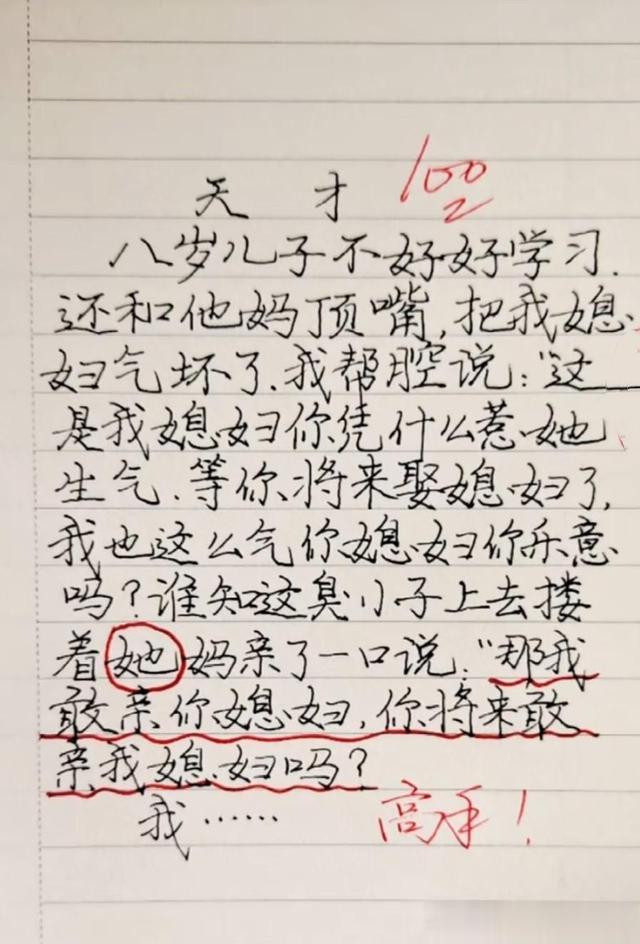 天才 100
八岁儿子不好好学习.
还和他妈顶嘴,把我媳
妇气坏了.我帮腔说:“这
是我媳妇你凭什么惹她
生气.等你将来娶媳妇了,
我也这么气你媳妇你乐意
吗?谁知这臭小子上去搂
着她妈亲了一口说.“那我
敢亲你媳妇,你将来敢
亲我媳妇吗?
我…… 高手!